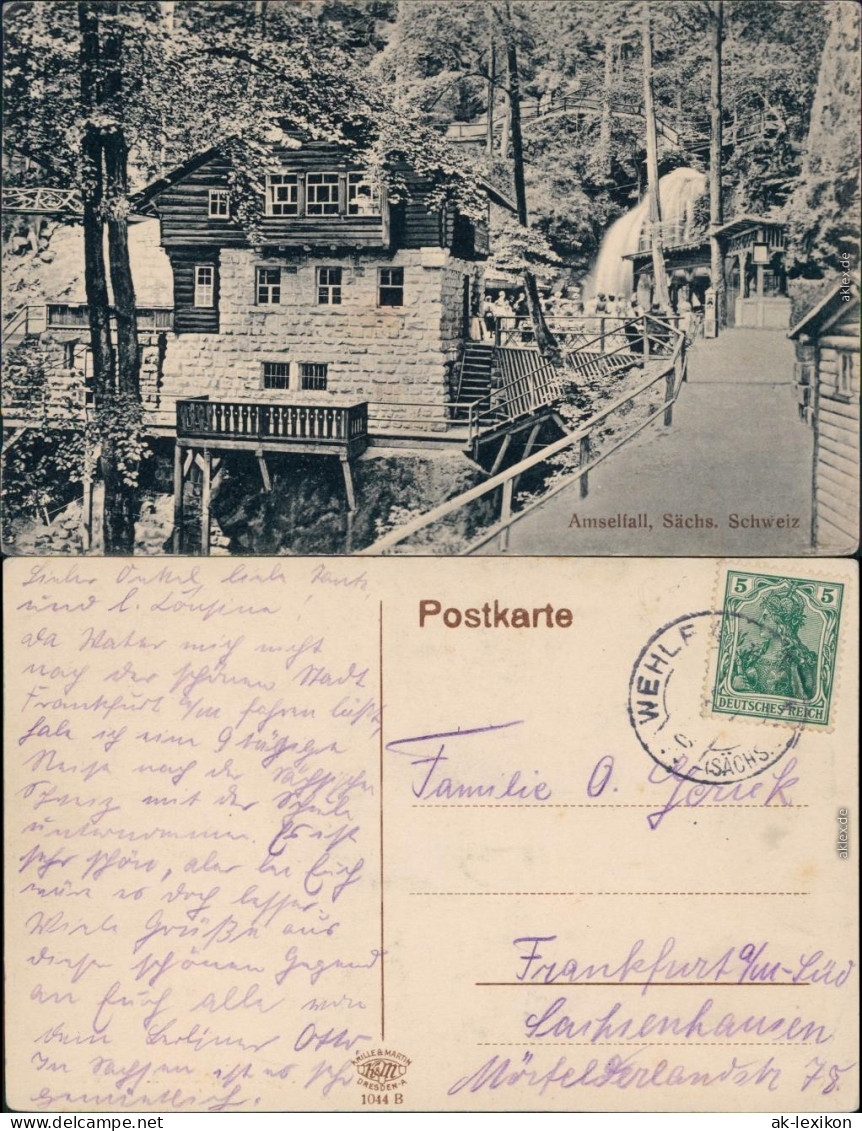 Amselfall, Sächs. Schweiz
Lieber Onkel, liebe Tante
und l. Cousine!
da Vater mich nicht
nach der schönen Stadt
Frankfurt a/m fahren läßt,
habe ich eine 9 tägige
Reise nach der Sächsischen
Schweiz mit der Schule
unternommen. Es ist
sehr schön, aber bei Euch
wäre es doch besser.
Viele Grüße aus
dieser schönen Gegend
an Euch alle von
dem Berliner Otto
In Sachsen ist es sehr
gemütlich.
Postkarte
5 5
DEUTSCHES REICH
WEHLEN
(SÄCHS.)
Familie O. Gerick
Frankfurt a/m-Süd
Sachsenhausen
Mörfelderlandstr 78.
& MARTIN
K&M
DRESDEN-A
1044 B
aklex.de
aklex.de
www.ak-lexikon.com
ak-lexikon